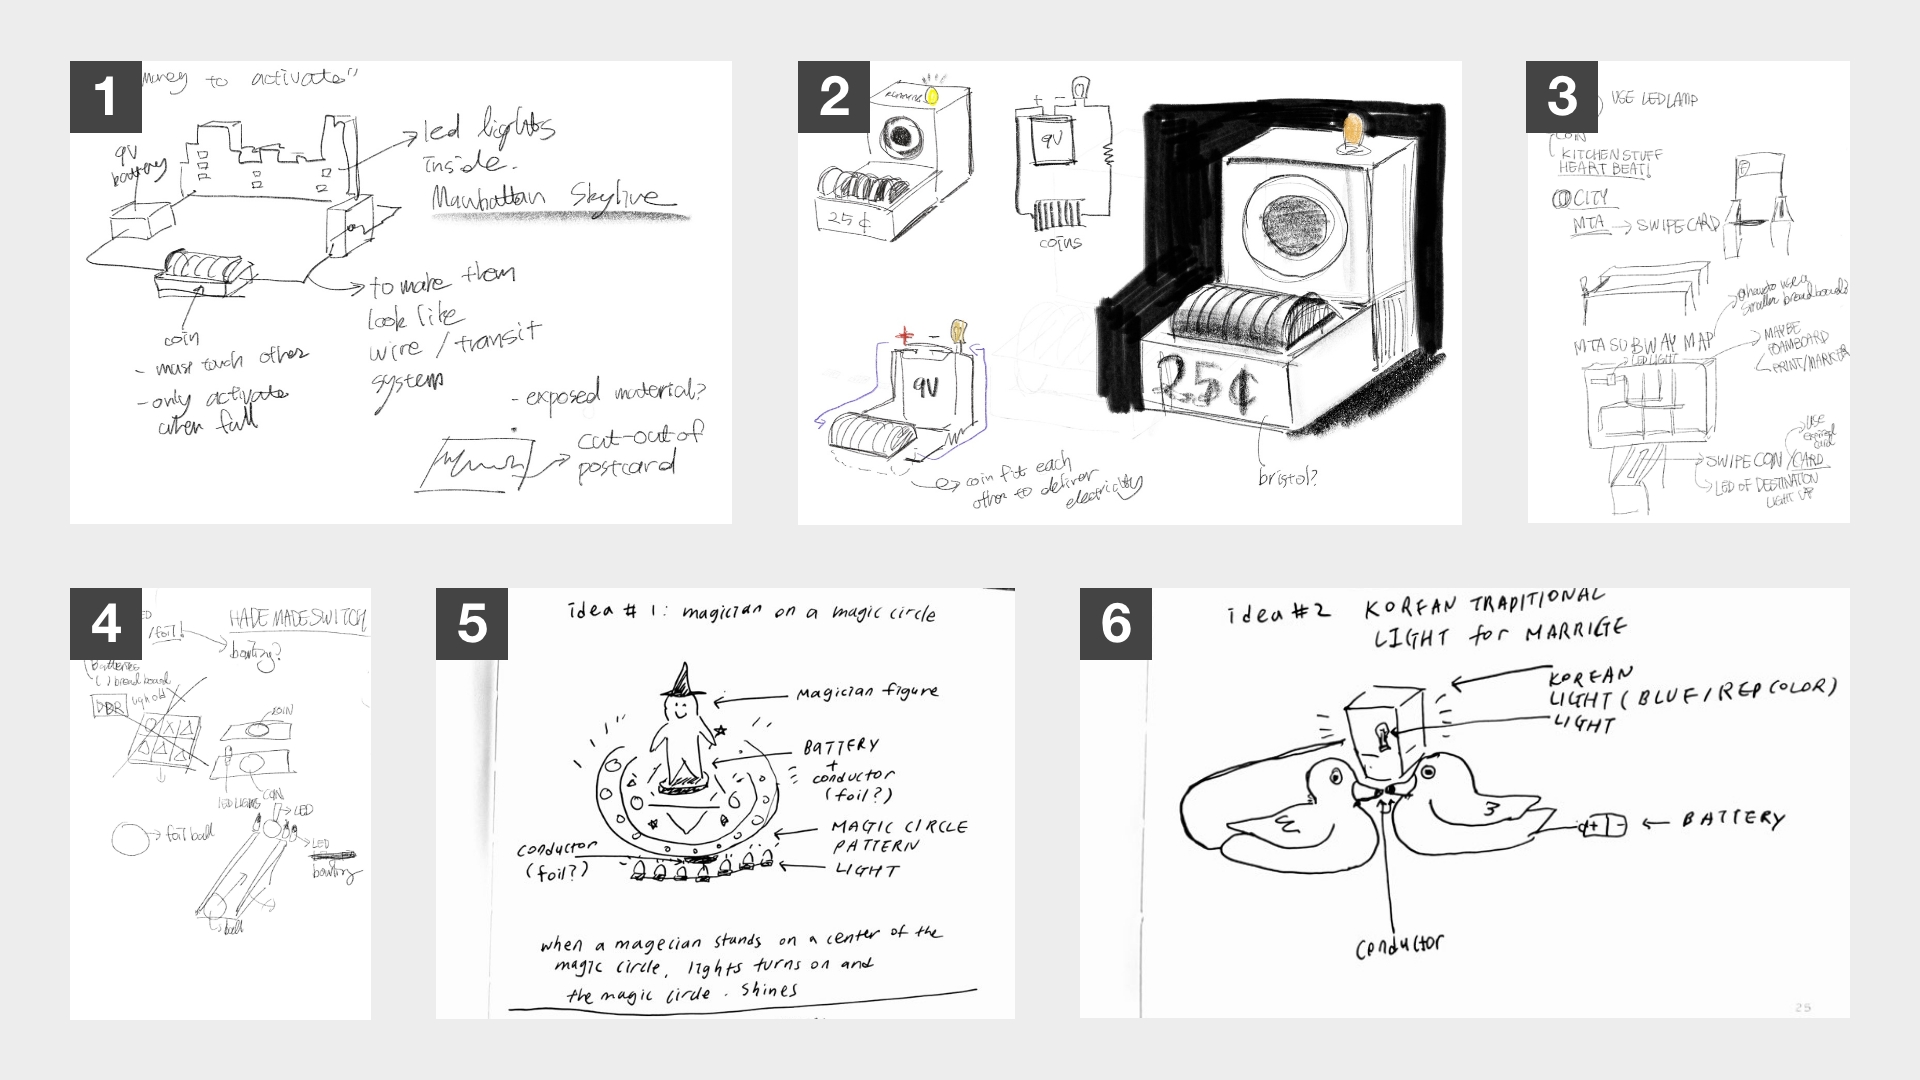 1
money to activate"
9V
battery
led lights
inside.
Manhattan Skyline
coin
- must touch other
- only activate
when full
to make them
look like
wire / transit
system
- exposed material?
cut-out of
postcard
2
RUNNING
25¢
+ -
9V
coins
+ -
9V
coin fit each
other to deliver
electricity
25¢
bristol?
3
USE LED LAMP
KITCHEN STUFF
HEART BEAT!
CITY
MTA → SWIPE CARD
smaller breadboard?
MTA SUBWAY MAP
LED LIGHT
MAYBE
FOAMBOARD
PRINT/MARKER
USE
SWIPE COIN / CARD
LED OF DESTINATION
LIGHT UP
4
ED
/foil!
HADE MADE SWITCH
bowling?
Batteries
( ) breadboard
DDR
COIN
LED LIGHTS
COIN
foil ball
LED
LED
bowling
ball
5
idea # 1: magician on a magic circle
magician figure
BATTERY
+
conductor
(foil?)
MAGIC CIRCLE
PATTERN
conductor
(foil?)
LIGHT
when a magecian stands on a center of the
magic circle, lights turns on and
the magic circle . shines
6
idea #2 KOREAN TRADITIONAL
LIGHT for MARRIGE
KOREAN
LIGHT (BLUE/REP COLOR)
LIGHT
+ -
BATTERY
conductor
25